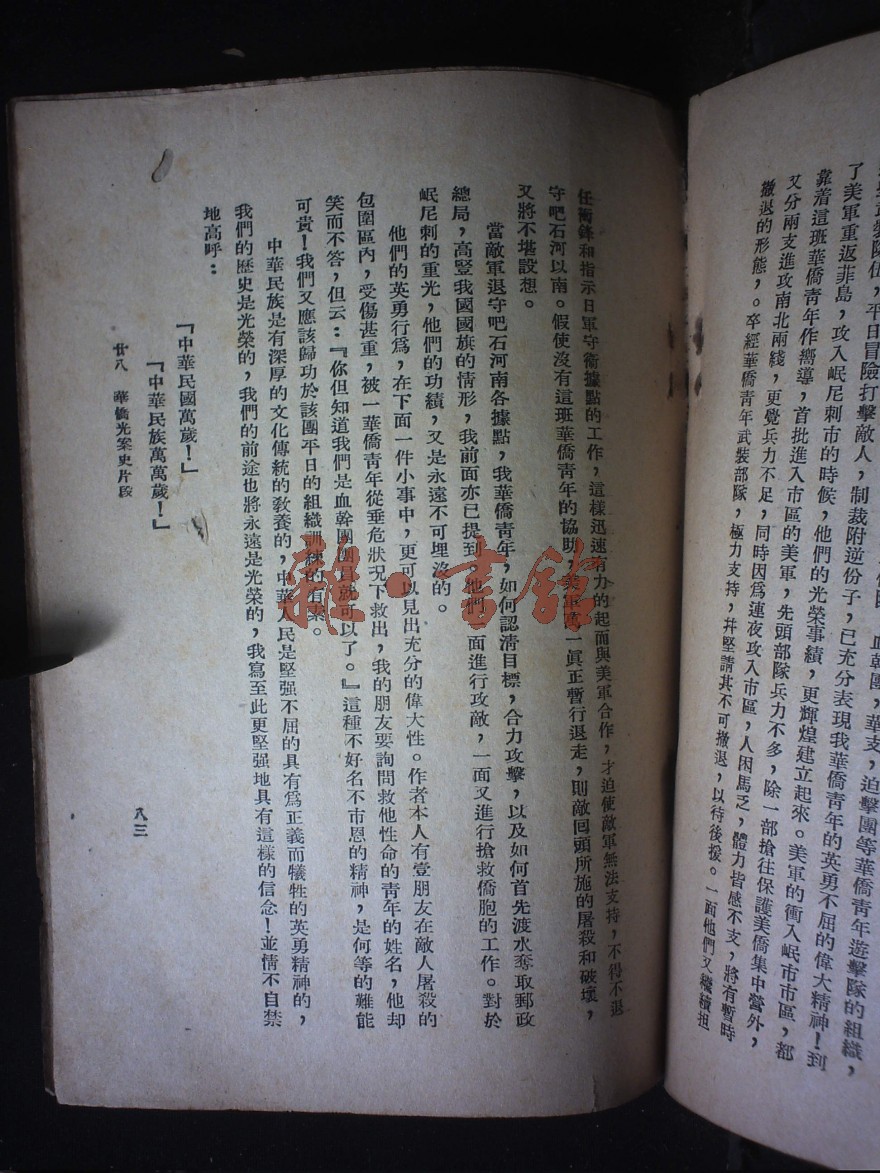 隊伍,平日冒險打擊敵人,制裁附逆份子,已充分表現我華僑青年的英勇不屈的偉大精神!到
血幹團,華支,迫擊團等華僑青年遊擊隊的組織,
了美軍重返菲島,攻入岷尼刺市的時候,他們的光榮事績,更輝煌建立起來。美軍的衝入岷市市區,都
靠着這班華僑青年作嚮導,首批進入市區的美軍,先頭部隊兵力不多,除一部搶往保護美僑集中營外,
又分兩支進攻南北兩綫,更覺兵力不足,同時因爲連夜攻入市區,人困馬乏,體力皆感不支,將有暫時
撤退的形態,。卒經華僑青年武裝部隊,極力支持,幷堅請其不可撤退,以待後援。一面他們又繼續担
任衝鋒和指示日軍守衛據點的工作,這樣迅速有力的起而與美軍合作,才迫使敵軍無法支持,不得不退
守吧石河以南。假使沒有這班華僑青年的協助,美軍萬一眞正暫行退走,則敵囘頭所施的屠殺和破壞,
又將不堪設想。
當敵軍退守吧石河南各據點,我華僑青年,如何認淸目標,合力攻擊,以及如何首先渡水奪取郵政
總局,高豎我國國旗的情形,我前面亦已提到,他們一面進行攻敵,一面又進行搶救僑胞的工作。對於
岷尼刺的重光,他們的功績,又是永遠不可埋沒的。
他們的英勇行爲,在下面一件小事中,更可以見出充分的偉大性。作者本人有壹朋友在敵人屠殺的
包圍區內,受傷甚重,被一華僑青年從垂危狀況下救出,我的朋友要詢問救他性命的青年的姓名,他却
笑而不答,但云:『你但知道我們是血幹團團員就可以了。』這種不好名不市恩的精神,是何等的難能
可貴!我們又應該歸功於該團平日的組織訓練的有素。
中華民族是有深厚的文化傳統的敎養的,中華人民是堅强不屈的具有爲正義而犧牲的英勇精神的,
我們的歷史是光榮的,我們的前途也將永遠是光榮的,我寫至此更堅强地具有這樣的信念!並情不自禁
地高呼:
『中華民國萬歲!』
『中華民族萬萬歲!』
廿八 華僑光案史片段
八三
雜·書館